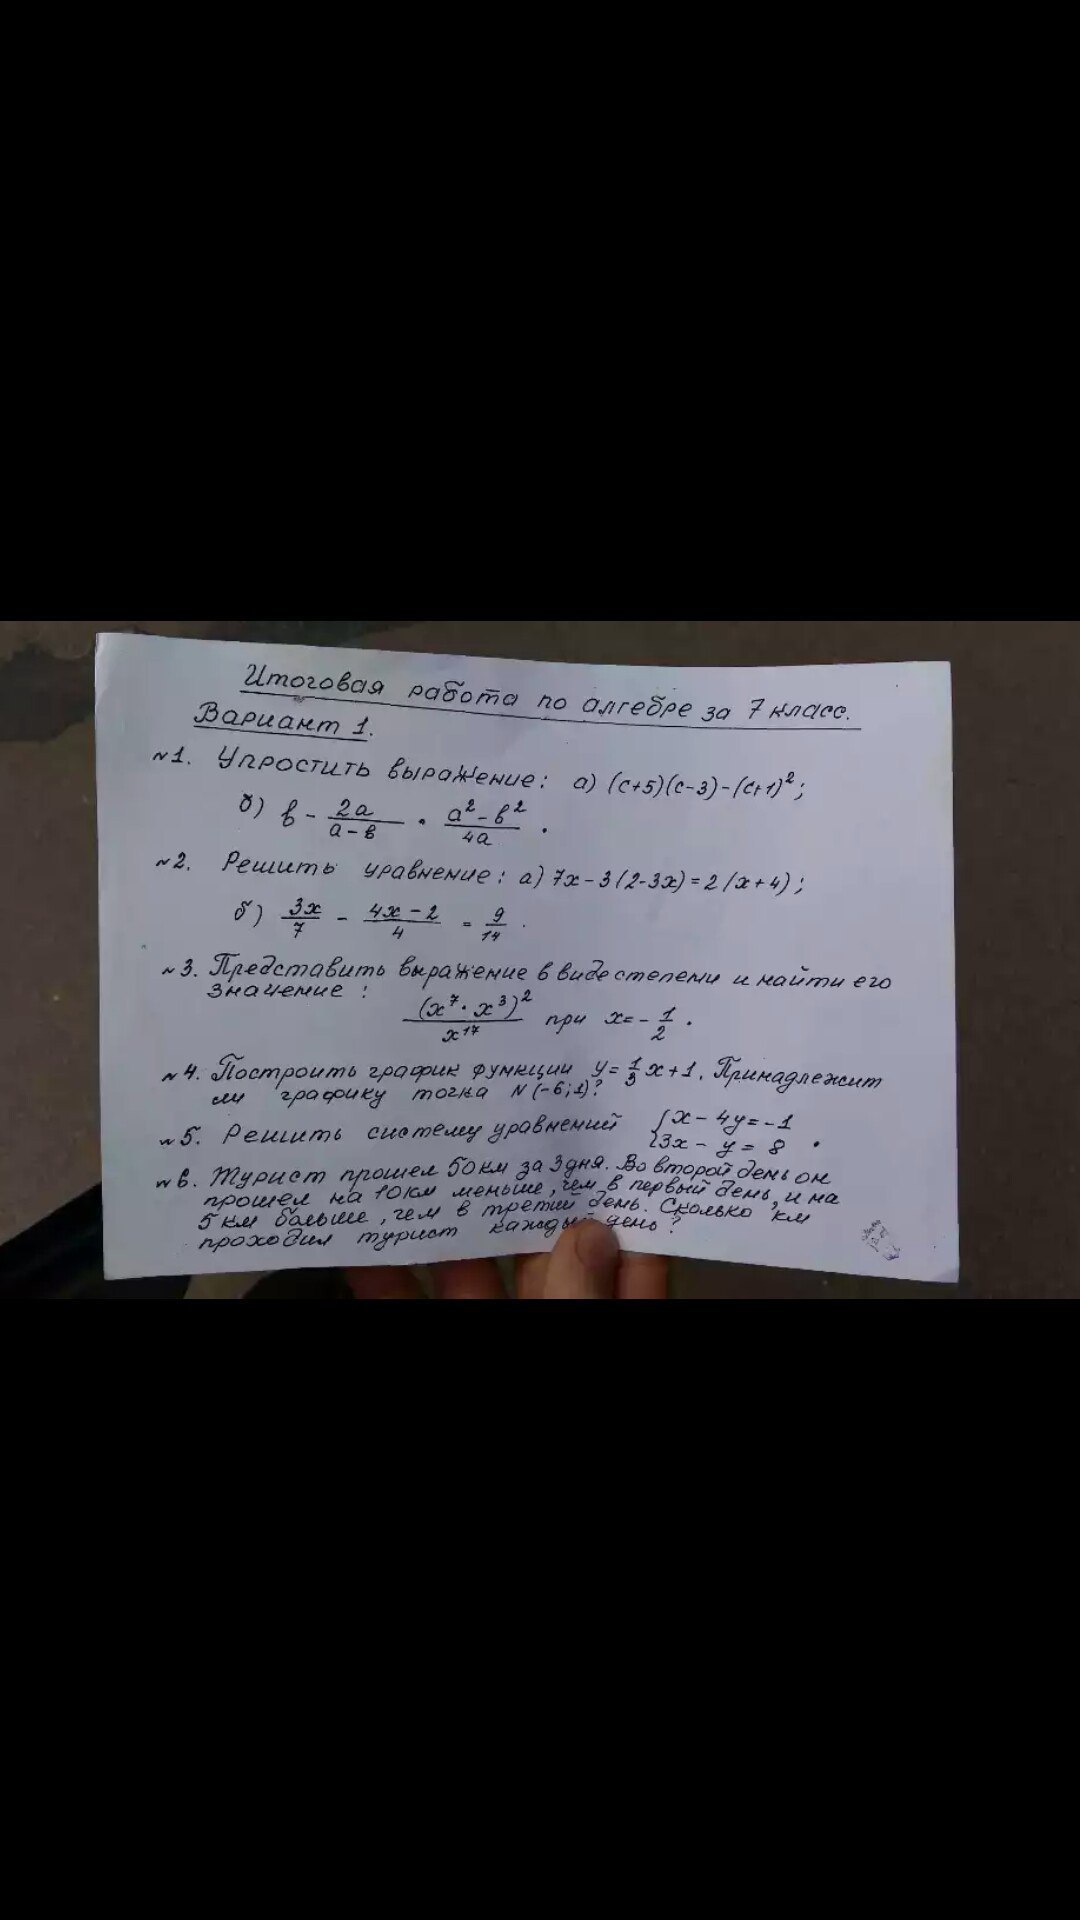 Итоговая работа по алгебре за 7 класс.
Вариант 1.
№1. Упростить выражение: а) (c+5)(c-3)-(c+1)²;
б) в - 2а/(а-в) · (а²-в²)/4а .
№2. Решить уравнение: а) 7х-3(2-3х)=2(х+4);
б) 3х/7 - (4х-2)/4 = 9/14 .
№3. Представить выражение в виде степени и найти его
значение:
(х⁷·х³)²/х¹⁷ при х=-1/2 .
№4. Построить график функции у=1/3х+1. Принадлежит
ли графику точка N(-6;1)?
№5. Решить систему уравнений {х-4у=-1
{3х-у=8 .
№6. Турист прошел 50км за 3дня. Во второй день он
прошел на 10км меньше, чем в первый день, и на
5км больше, чем в третий день. Сколько км
проходил турист каждый день?